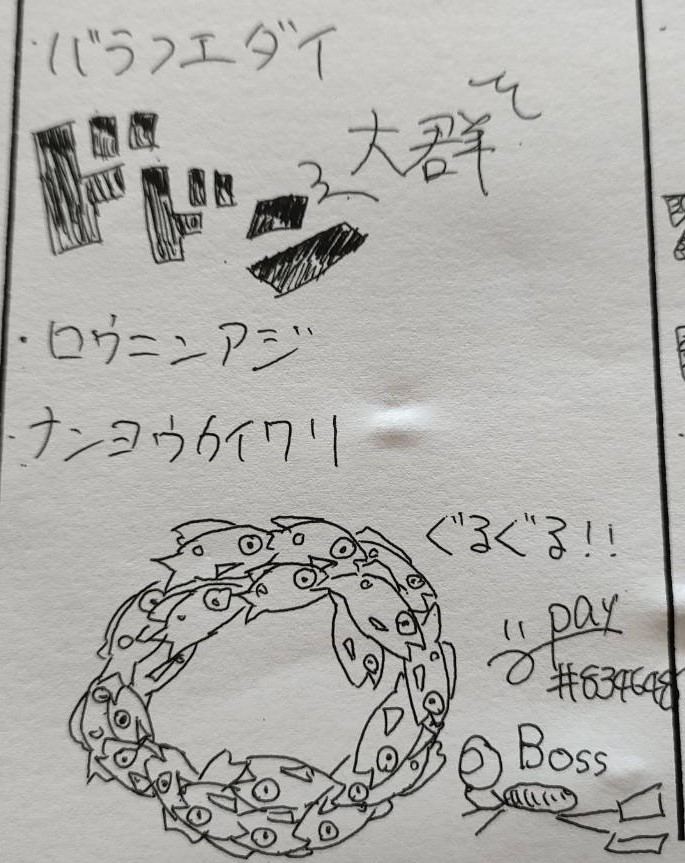 ・バラフエダイ
ドドーン 大群
・ロウニンアジ
・ナンヨウカイワリ
ぐるぐる!!
pay
#834648
Boss